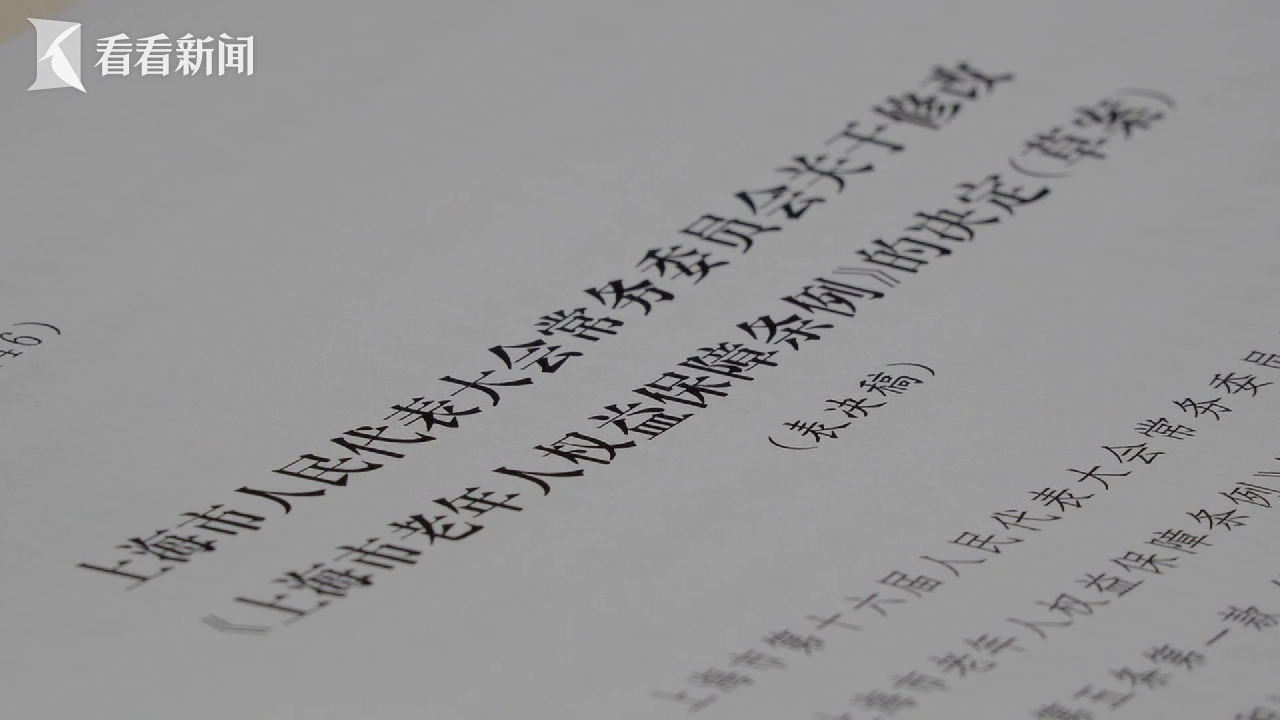 看看新闻
46）
上海市人民代表大会常务委员会关于修改
《上海市老年人权益保障条例》的决定（草案）
（表决稿）
上海市第十六届人民代表大会常务委员
海市老年人权益保障条例》
第五条第一款